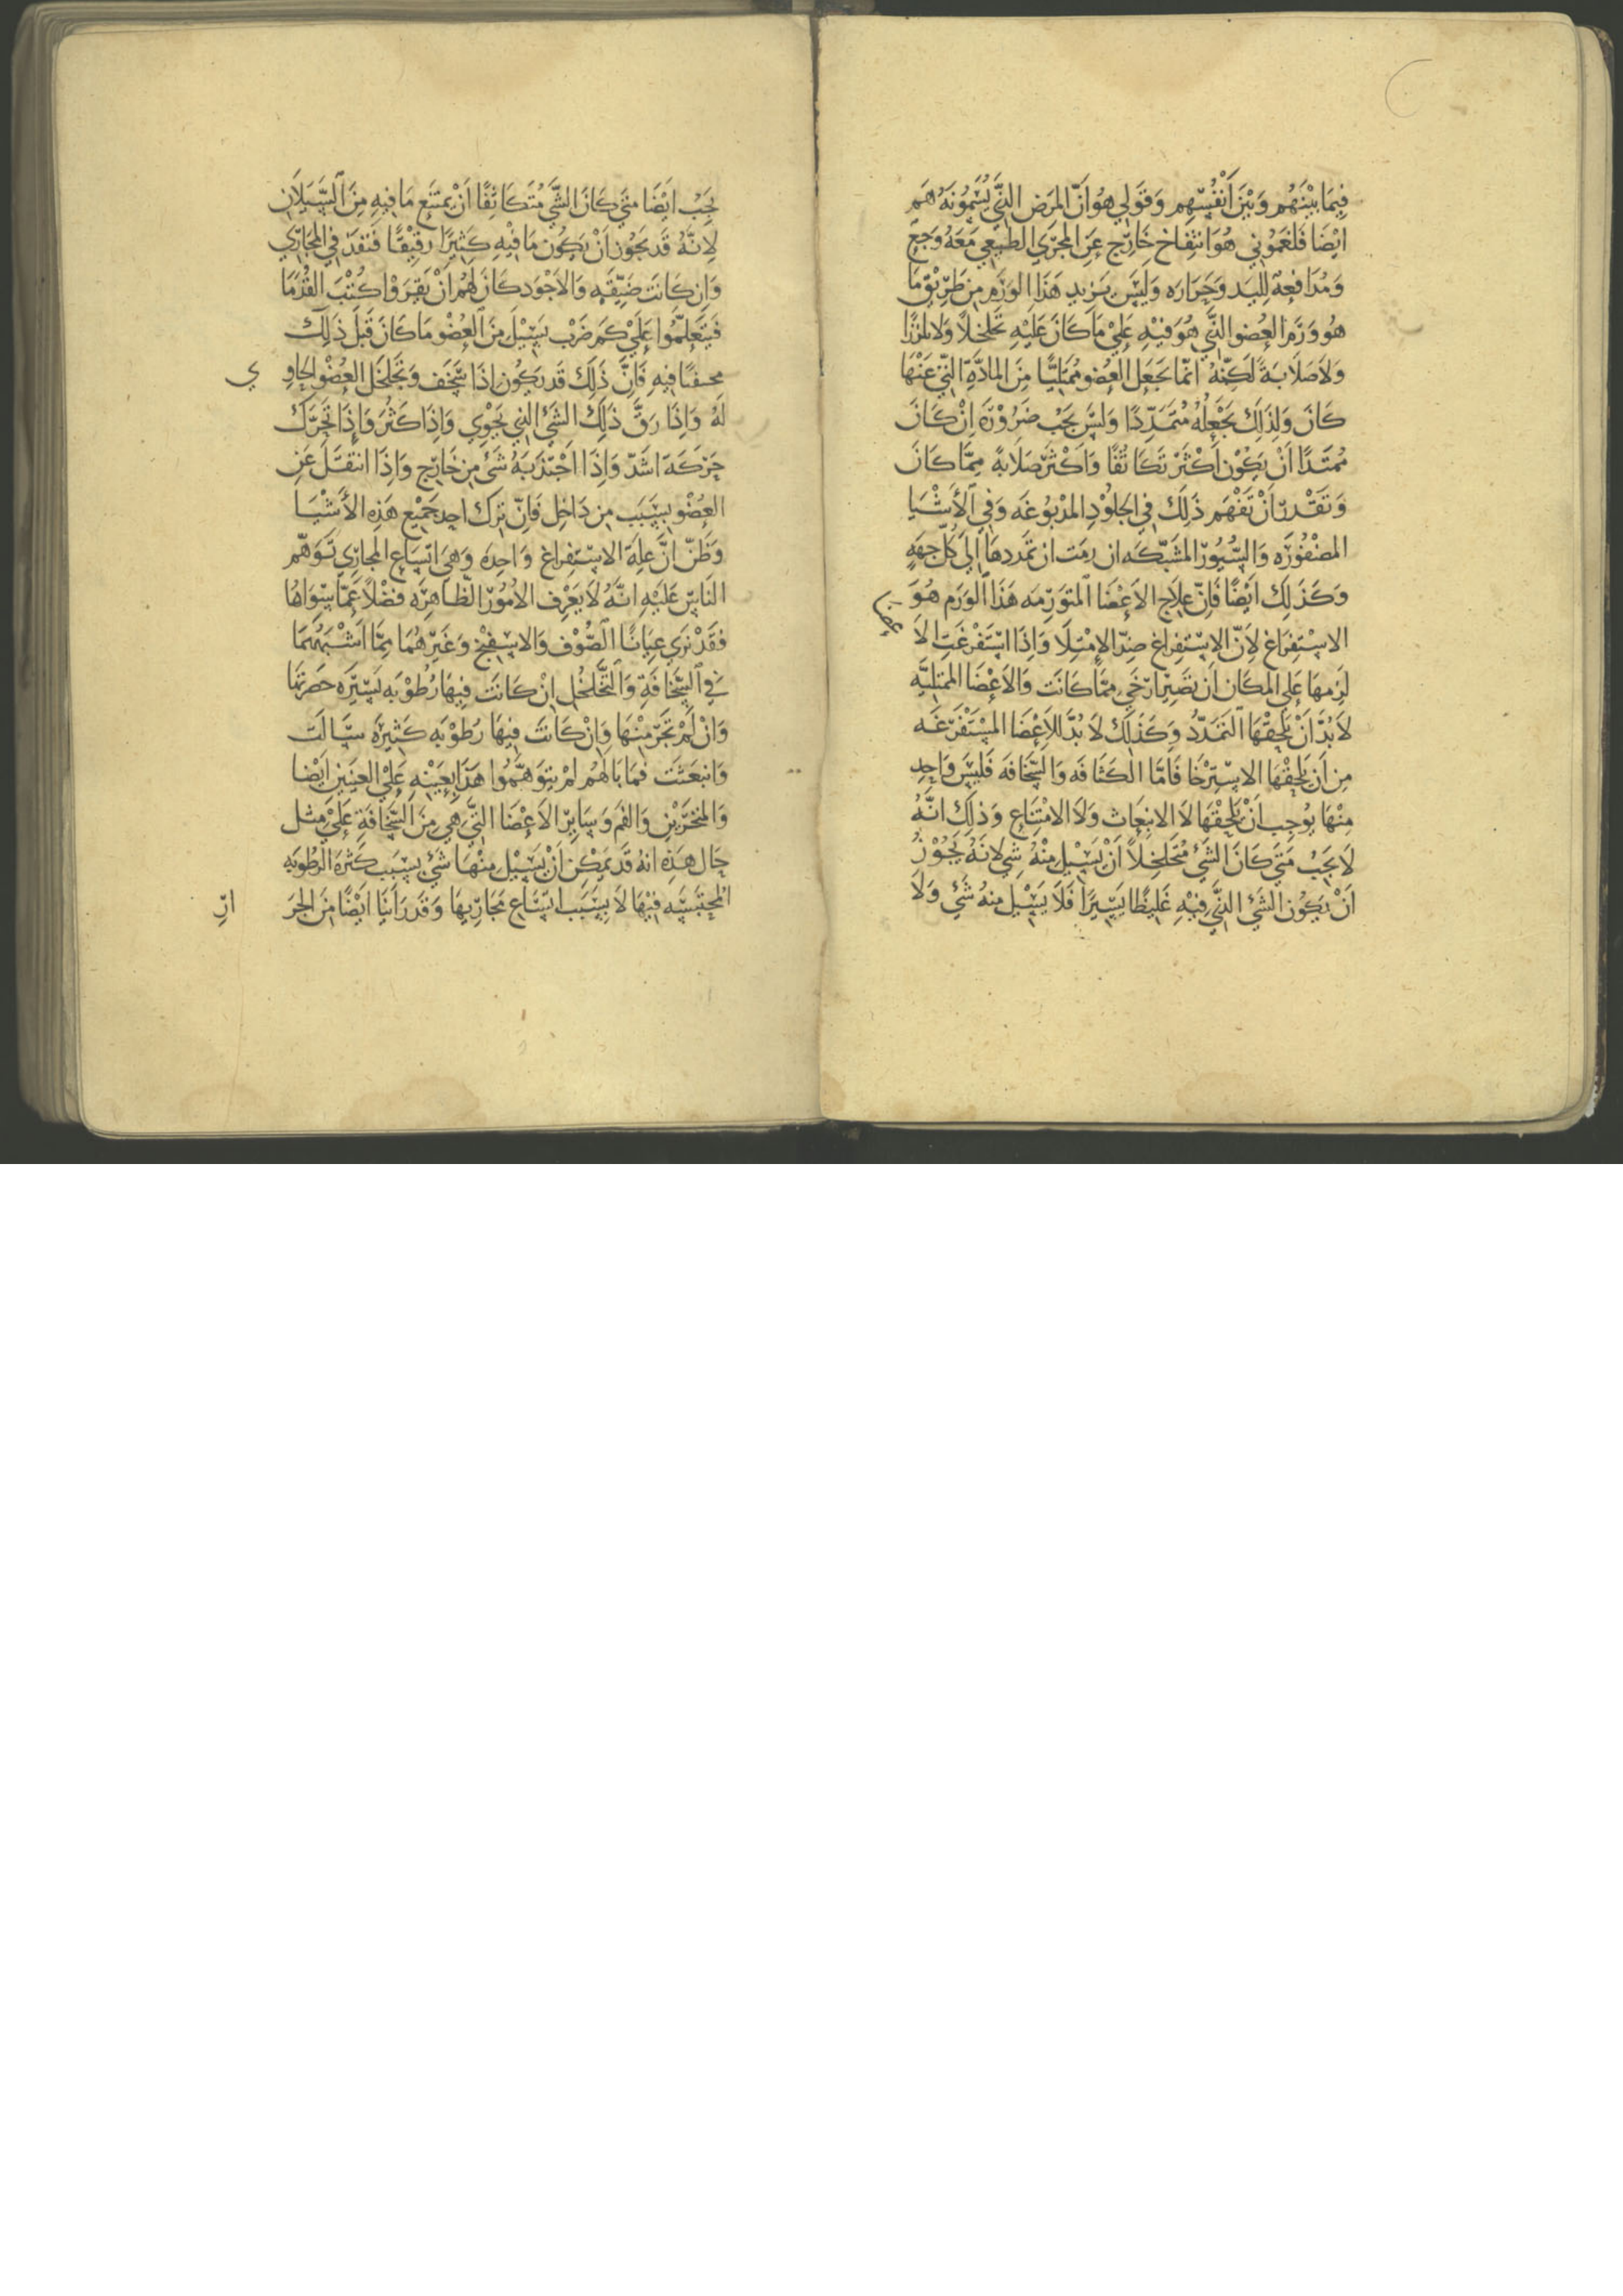 فِيمَا بَيْنَهُم وَبَيْنَ اَنْفُسِهِم وَقَوْلِي هُوَ اَنَّ المَرَضَ الذَّي يُسَمُّونَهُ هُم
اَيْضًا فَلْغَمُوْنِي هُوَ انتِفاخ خَارِج عَنِ المَجْرَي الطَبِيعِي مَعَهُ وَجَعٌ
وَمُدَافِعة لِليَد وَحَرَارَه وَلَيْسَ يَزِيد هَذَا الوَرَم مِن طَرِيْق مَا
هُو وَرَم العُضو الذَّي هُوَ فيْهِ عَليْ مَا كَانَ عَلَيْهِ تَخَلخلاً وَلَا تلزُزًا
وَلَا صَلَابَةً لَكنّهُ انمّا يَجعَل العُضو مُمْتَلِيًا مِنَ المَادَّةِ التِّي عَنْهَا
كَانَ وَلِذَلِكَ يَجْعَلُهُ مُتَمَدِّدًا وَلَيسَ يَجْب ضَرُوْرَةً اِنْ كَانَ
مُمتَدًا اَنْ يَكُوْن اَكْثَر تَكَاثُفًا وَاكْثَرَ صَلَابةً مِمَّا كَانَ
وَتَقْدر اَنْ تَفْهَم ذَلِكَ فِي الجلوُدِ المدْبُوغَه وَفِي الأَشْيَا
المضْفُورَه وَالسُّيوُر المُشبَّكَه ان رمَت ان تمَددهَا اِليَ كُلّ جِهَهٍ
وَكَذَلِكَ اَيْضًا فَاِنّ عِلَاج الاَعْضَا المُتوَرِّمَه هَذَا الوَرَم هُوَ
الاسْتِفرَاغ لِاَنّ الاِسْتِفرَاغ ضِدّ الاِمتِلَا وَاِذَا اسْتَفْرغَتِ الاَ
عضا
لَزِمهَا عَلي المكَان اَن تصَيِرَ اَرْخَي مِمَّا كَانَت وَالاَعْضَا المُمتَلِيَّه
لَابُدَّ اَنْ يَلحِقْهَا التَمَدّدُ وَكَذَلِكَ لَا بُدَّ لِلاَعْضَا المُسْتَفْرَغَه
مِن اَن يَلحِقْهَا الاسْتِرْخَا فَامّا الكَثَافَه وَالسَّخَافَه فَليسَ وَاحِد
مِنْهَا يوُجِب اَنْ يَلحِقْهَا لَا الانبِعَاث وَلَا الامْتِنَاع وَذَلِكَ انَّهُ
لَا يَجِبْ مَتيَ كَانَ الشَيْ مُتَخَلخِلاً اَنْ يَسِيْل مِنْهُ شَي لِانَهُ يَجُوْزُ
اَنْ يَكوُن الشَيْ الذَّي فِيْهِ غَلِيظًا يَسِيرًا فَلَا يَسِيْل مِنهُ شَيْ وَلَا
يَجِبْ اَيْضَا مَتي كَانَ الشّي مُتَكَاثِفًا اَنْ يمتَنِع مَا فِيهِ مِنَ السَّيَلَانِ
لِانَّهُ قَد يَجُوْز اَنْ يَكوُن مَا فِيْهِ كَثِيرًا رَقِيْقًا فَتَنفُذ فِي المَجَارِي
وَاِن كَانَت ضَيّقَه وَالاَجْوَد كَانَ لَهُم اَنْ يَقرَوْا كُتْبَ القُدَمَا
فَيَتَعَلمُّوا عَليْ كَم ضَرْب يَسِيْلَ مِنَ العُضْو مَا كَانَ قَبْلَ ذَلِكَ
مُحتقنًا فِيهِ فَاِنَّ ذَلِكَ قَد يَكوُن اِذَا سَّخَف وَتَخَلخَل العُضْو الحَاوِ
ي
لَهُ وَاِذَا رَقَّ ذَلِكَ الشَيْ الذِي يَحْوِي وَاِذَا كَثُرَ وَاِذَا تَحَرَّكَ
حَرَكَةَ اشَدّ وَاِذَا اجْتَذبَهُ شَيْ مِن خَارِج وَاِذَا انتقَل عَنِ
العُضْو بِسَبَب مِن دَاخِل فَاِنّ تَرَكَ احِد جَمِيْع هَذِه الأَشْيَا
وَظَنّ اَنّ عِلة الاِسْتِفرَاغ وَاحِدَه وَهيَ اتسّاع المجَارِي تَوَهّم
النَاس عَلَيْهِ انَّهُ لَا يَعَرِف الاموُر الظَاهِرَه فَضْلاً عَمّا سِوَاهَا
فَقَدْ نَرَي عِيَانًا الصُّوْف وَالاسْفِنْج وَغَيرهُمَا مِمّا اَشْبَهَهُمَا
فِي السَّخَافَةِ وَالتَّخَلخُل اِنْ كَانَتَ فِيهَا رُطوْبَه يَسِيرَه حَصرتَهَا
وَاِنْ لَمْ تَجَرّ مِنْهَا وَاِنْ كَانَتَ فِيهَا رُطوْبَه كَثِيرَه سَالَت
وَانبَعَثَت فمَا بَالهُم لَمْ يتوَهّمُوا هَذَا بِعَيْنهِ عَليْ العَيْنَيْنِ اَيْضًا
وَالمَنْخَرَيْنِ وَالفَم وَسَايِر الاَعْضَا التَّي هَيَ مِنَ السَّخَافَةِ عَليْ مِثل
حَال هَذِه انهُ قَد يمكِن اَنْ يَسِيْل مِنْهَا شَيْ بِسَبَب كَثرَة الرطُوبَه
المُحتَبَسِه فيْهَا لَا بِسَبَب اتسَّاع مَجَارِيهَا وَقَد رَاَينَا اَيْضًا مِنَ الجِرَ
ارِ